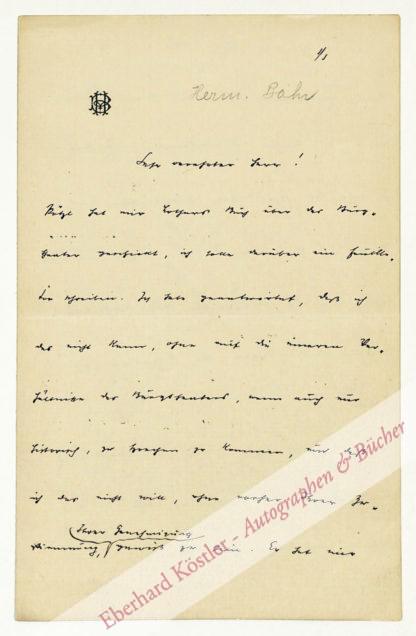 4/3
HB
Herm. Bahr
Sehr verehrter Herr!
Pötzl hat mir Lothars Buch über das Burg-
theater geschickt, ich solle darüber ein Feuille-
ton schreiben. Ich habe geantwortet, daß ich
das nicht kann, ohne auf die inneren Ver-
hältnisse des Burgtheaters, wenn auch nur
historisch, zu sprechen zu kommen, und daß
ich das nicht will, ohne vorher Ihrer Zu-
Ihrer Genehmigung
stimmung, gewiß zu sein. Er hat mir
Eberhard Köstler - Autographen & Bücher